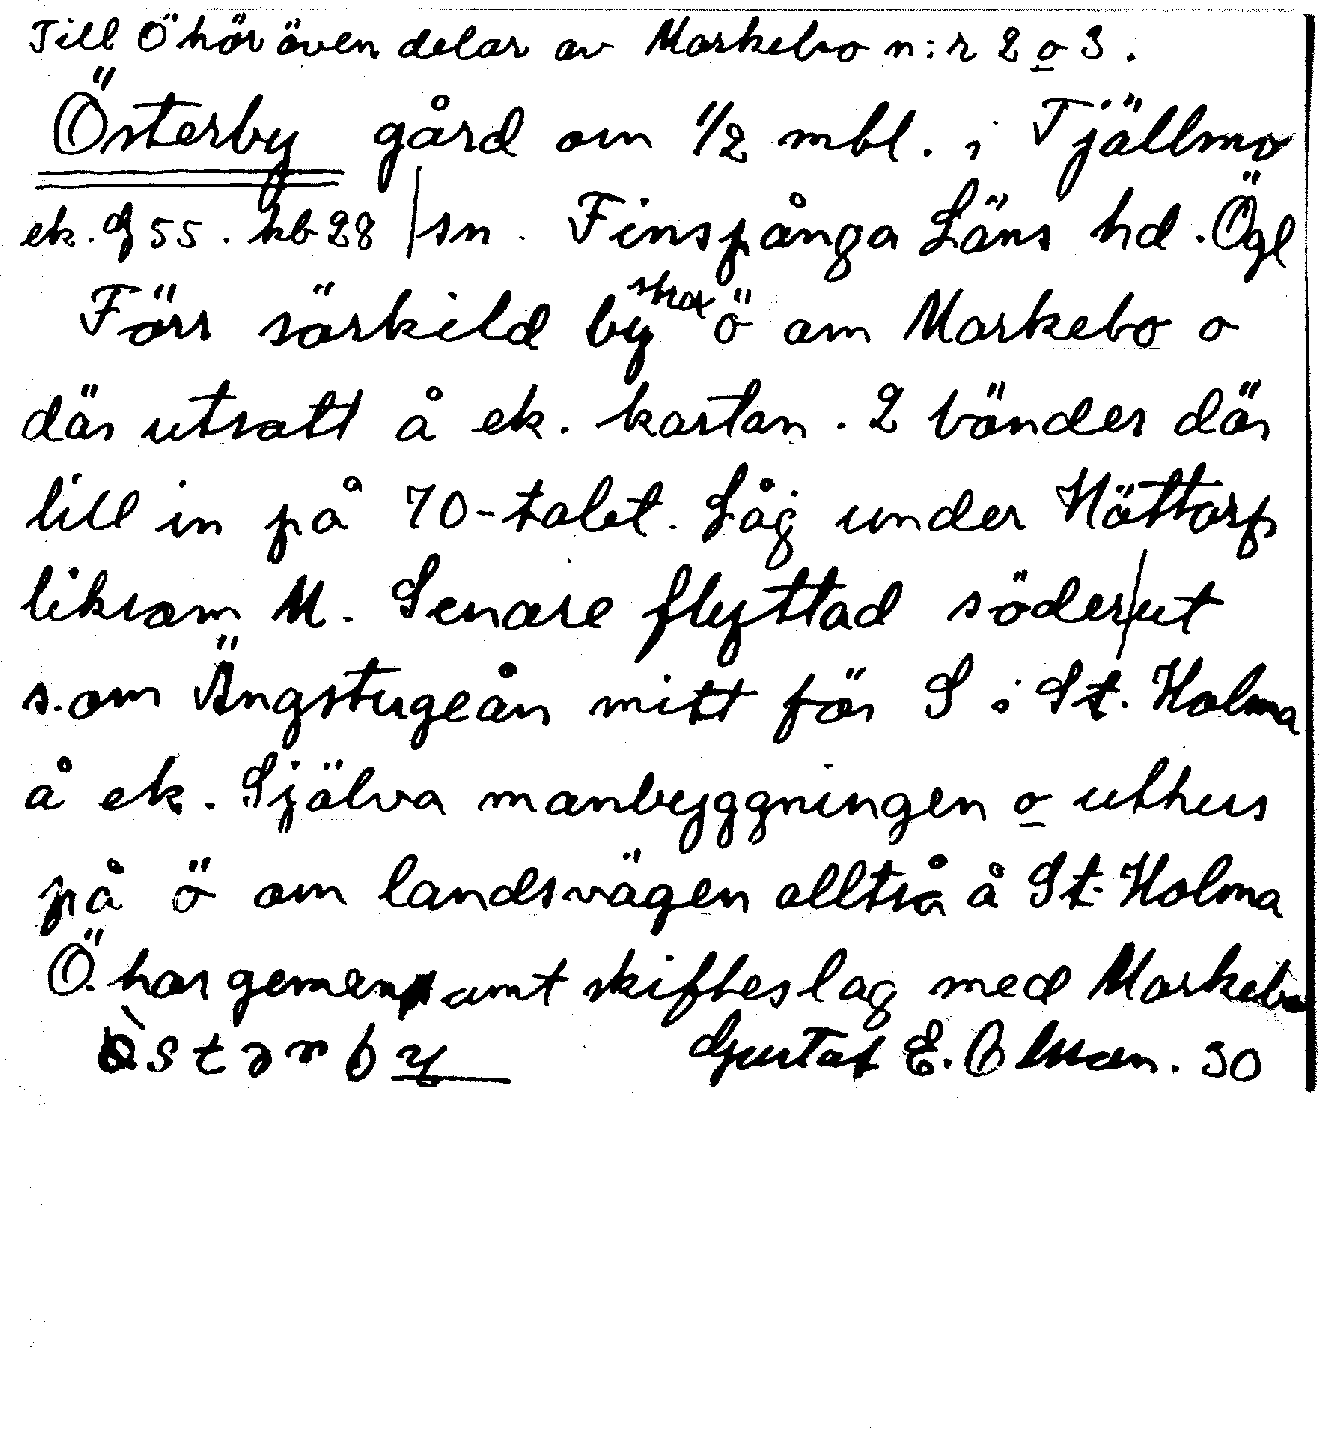 Till Ö hör även delar av Markebo n:r 2 o 3.
Österby gård om 1/2 mbl. i Tjällmo
ek. 55. hb 28 | sn. Finspånga Läns hd. Ögl
Förr särkild by strax ö om Markebo o
där utsatt å ek. kartan. 2 bönder där
till in på 70-talet. Låg under Hättorp
liksom M. Senare flyttad söder|ut
som Ängstugeån mitt för S i St. Holma
å ek. Själva manbyggningen o uthus
på ö om landsvägen alltså å St. Holma
Ö. har gemensamt skifteslag med Markebo
òstərby Gustaf E. Olsson. 30